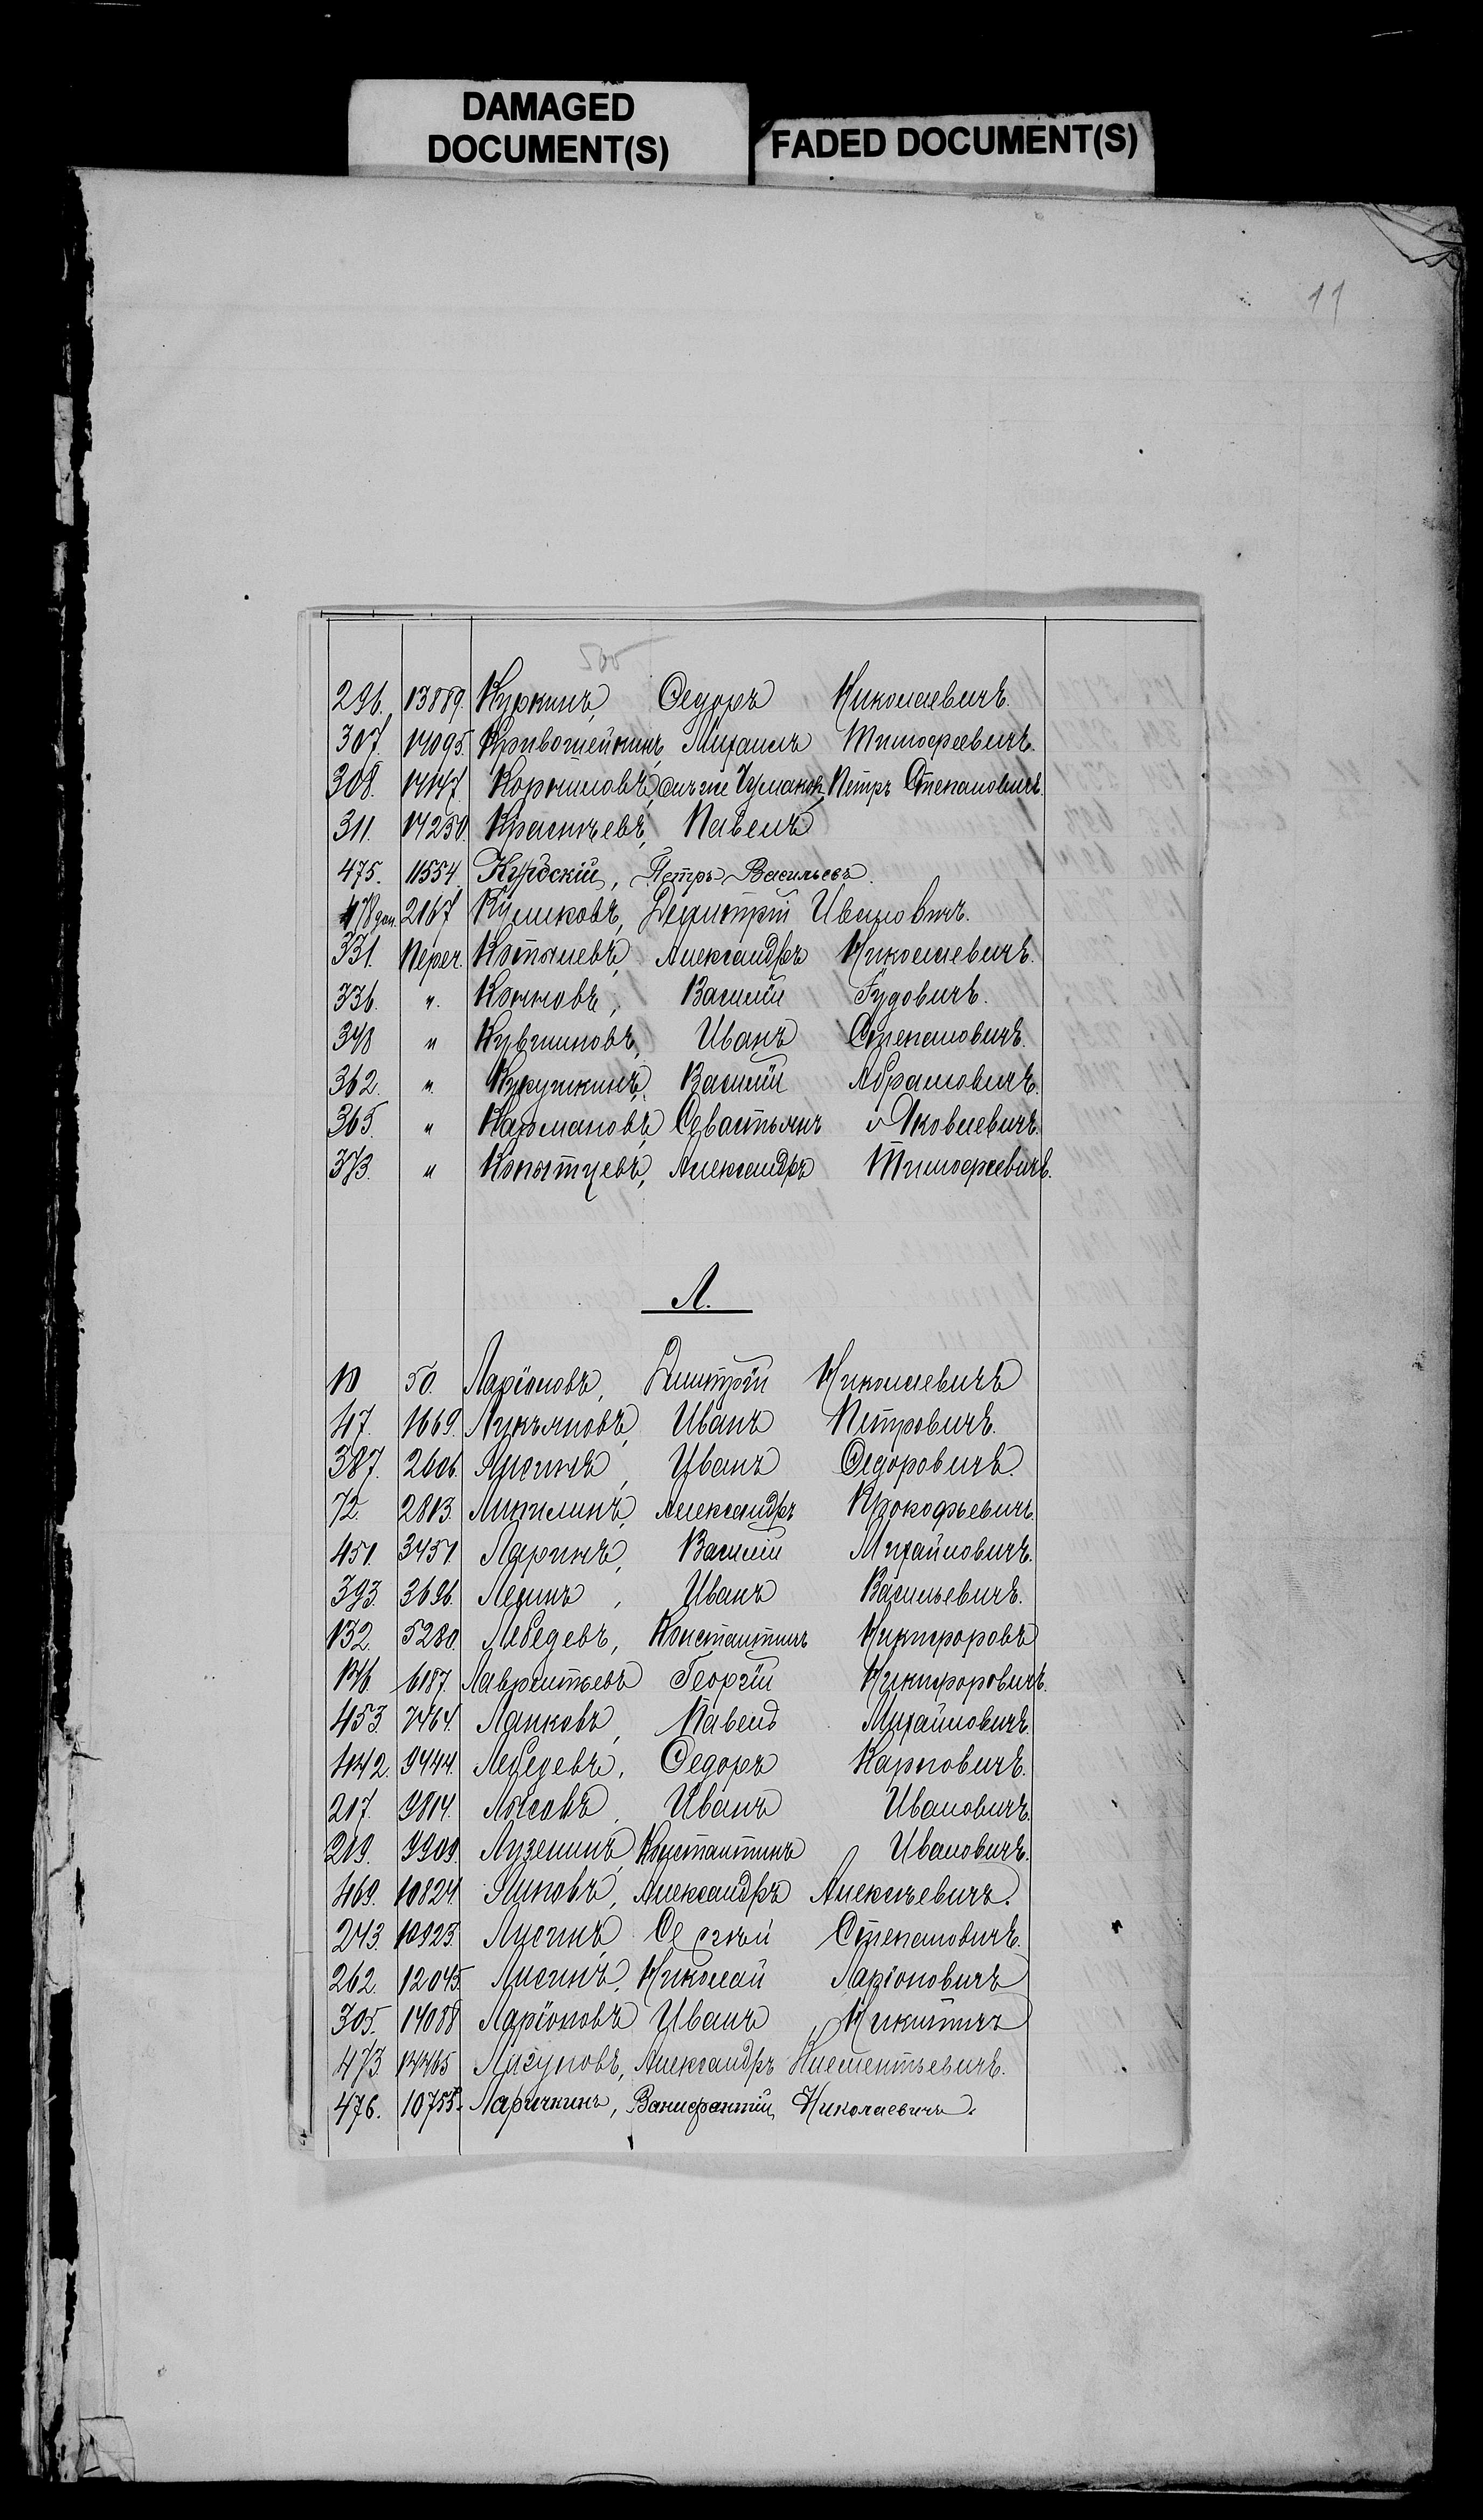 DAMAGED DOCUMENT(S)
FADED DOCUMENT(S)
11
505
296. 13889. Куркинъ, Федоръ Николаевичъ.
307. 14095. Кривошейкинъ, Михаилъ Тимофеевичъ.
308. 14147. Корниловъ, онъ же Чумаковъ, Петръ Степановичъ.
311. 14250. Красичевъ, Павелъ
475. 11554. Курбскій, Петръ Васильевъ.
478 доп. 2167 Куликовъ, Дмитрій Ивановичъ.
331. Переч. Костылевъ, Александръ Николаевичъ.
336. ". Конновъ, Василій Гудовичъ.
348 " Кувшиновъ, Иванъ Степановичъ.
362. ". Курушкинъ, Василій Абрамовичъ.
365. " Кармановъ, Севастьянъ Яковлевичъ.
373. " Копытцевъ, Александръ Тимофеевичъ.
Л.
10 50. Ларіоновъ, Дмитрій Николаевичъ
47. 1669. Лукъяновъ, Иванъ Петровичъ.
387. 2606. Лисинъ, Иванъ Федоровичъ.
72. 2813. Липилинъ, Александръ Прокофьевичъ.
451. 3451. Ларинъ, Василій Михайловичъ.
393. 3696. Лесинъ, Иванъ Васильевичъ.
132. 5280. Лебедевъ, Константинъ Никифоровъ
146. 6187. Лаврентьевъ Георгій Никифоровичъ.
453. 7464. Лапковъ, Павелъ Михайловичъ.
442. 9444. Лебедевъ, Федоръ Карповичъ.
217. 9814. Лысовъ, Иванъ Ивановичъ.
219. 9909. Лузенинъ, Константинъ Ивановичъ.
469. 10824 Линовъ, Александръ Алексѣевичъ.
243. 10923 Лисинъ, Сергѣй Степановичъ.
262. 12045. Лисинъ, Николай Ларіоновичъ
305. 14088 Ларіоновъ Иванъ Никитичъ
473. 14465 Лизуновъ, Александръ Клементьевичъ.
476. 10755. Ларичкинъ, Ванифантій Николаевичъ.